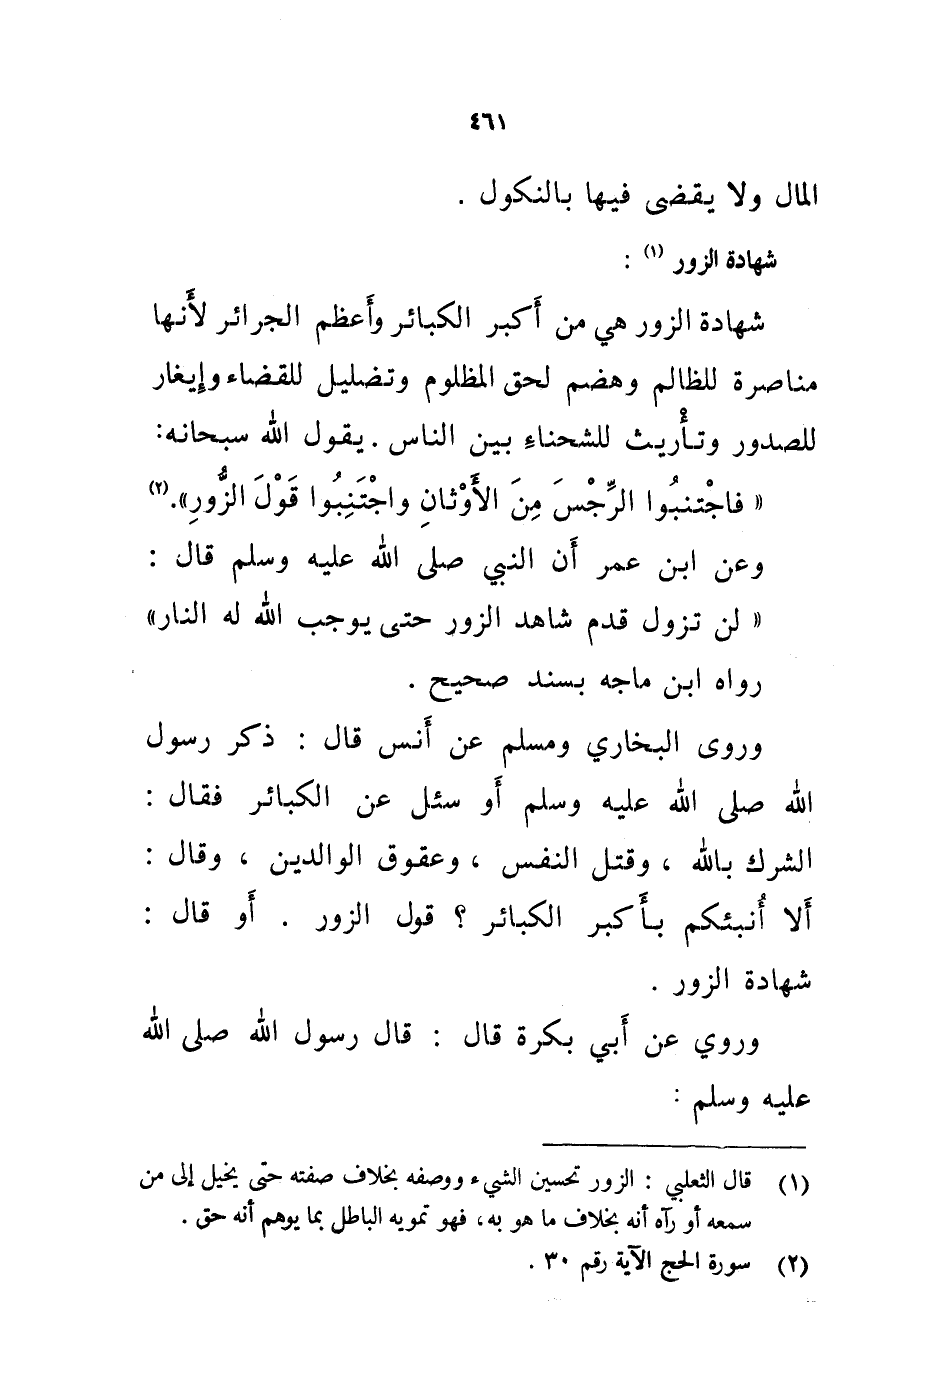 ٤٦١
المال ولا يقضى فيها بالنكول .
شهادة الزور (١) :
شهادة الزور هي من أَكبر الكبائر وأَعظم الجرائر لأَنها
مناصرة للظالم وهضم لحق المظلوم وتضليل للقضاء وإيغار
للصدور وتأْريث للشحناءِ بين الناس . يقول الله سبحانه:
« فاجْتنبُوا الرِّجْسَ مِنَ الأَوْثانِ واجْتَنِبُوا قَوْلَ الزُّورِ».(٢)
وعن ابن عمر أَن النبي صلى الله عليه وسلم قال :
« لن تزول قدم شاهد الزور حتى يوجب الله له النار»
رواه ابن ماجه بسند صحيح .
وروى البخاري ومسلم عن أَنس قال : ذكر رسول
الله صلى الله عليه وسلم أَو سئل عن الكبائر فقال :
الشرك بالله ، وقتل النفس ، وعقوق الوالدين ، وقال :
أَلا أُنبئكم بأَكبر الكبائر ؟ قول الزور . أَو قال :
شهادة الزور .
وروي عن أَبي بكرة قال : قال رسول الله صلى الله
عليه وسلم :
(١) قال الثعلبي : الزور تحسين الشيء ووصفه بخلاف صفته حتّى يخيل إلى من
سمعه أو رآه أنه بخلاف ما هو به، فهو تمويه الباطل بما يوهم أنه حق .
(٢) سورة الحج الآية رقم ٣٠ .